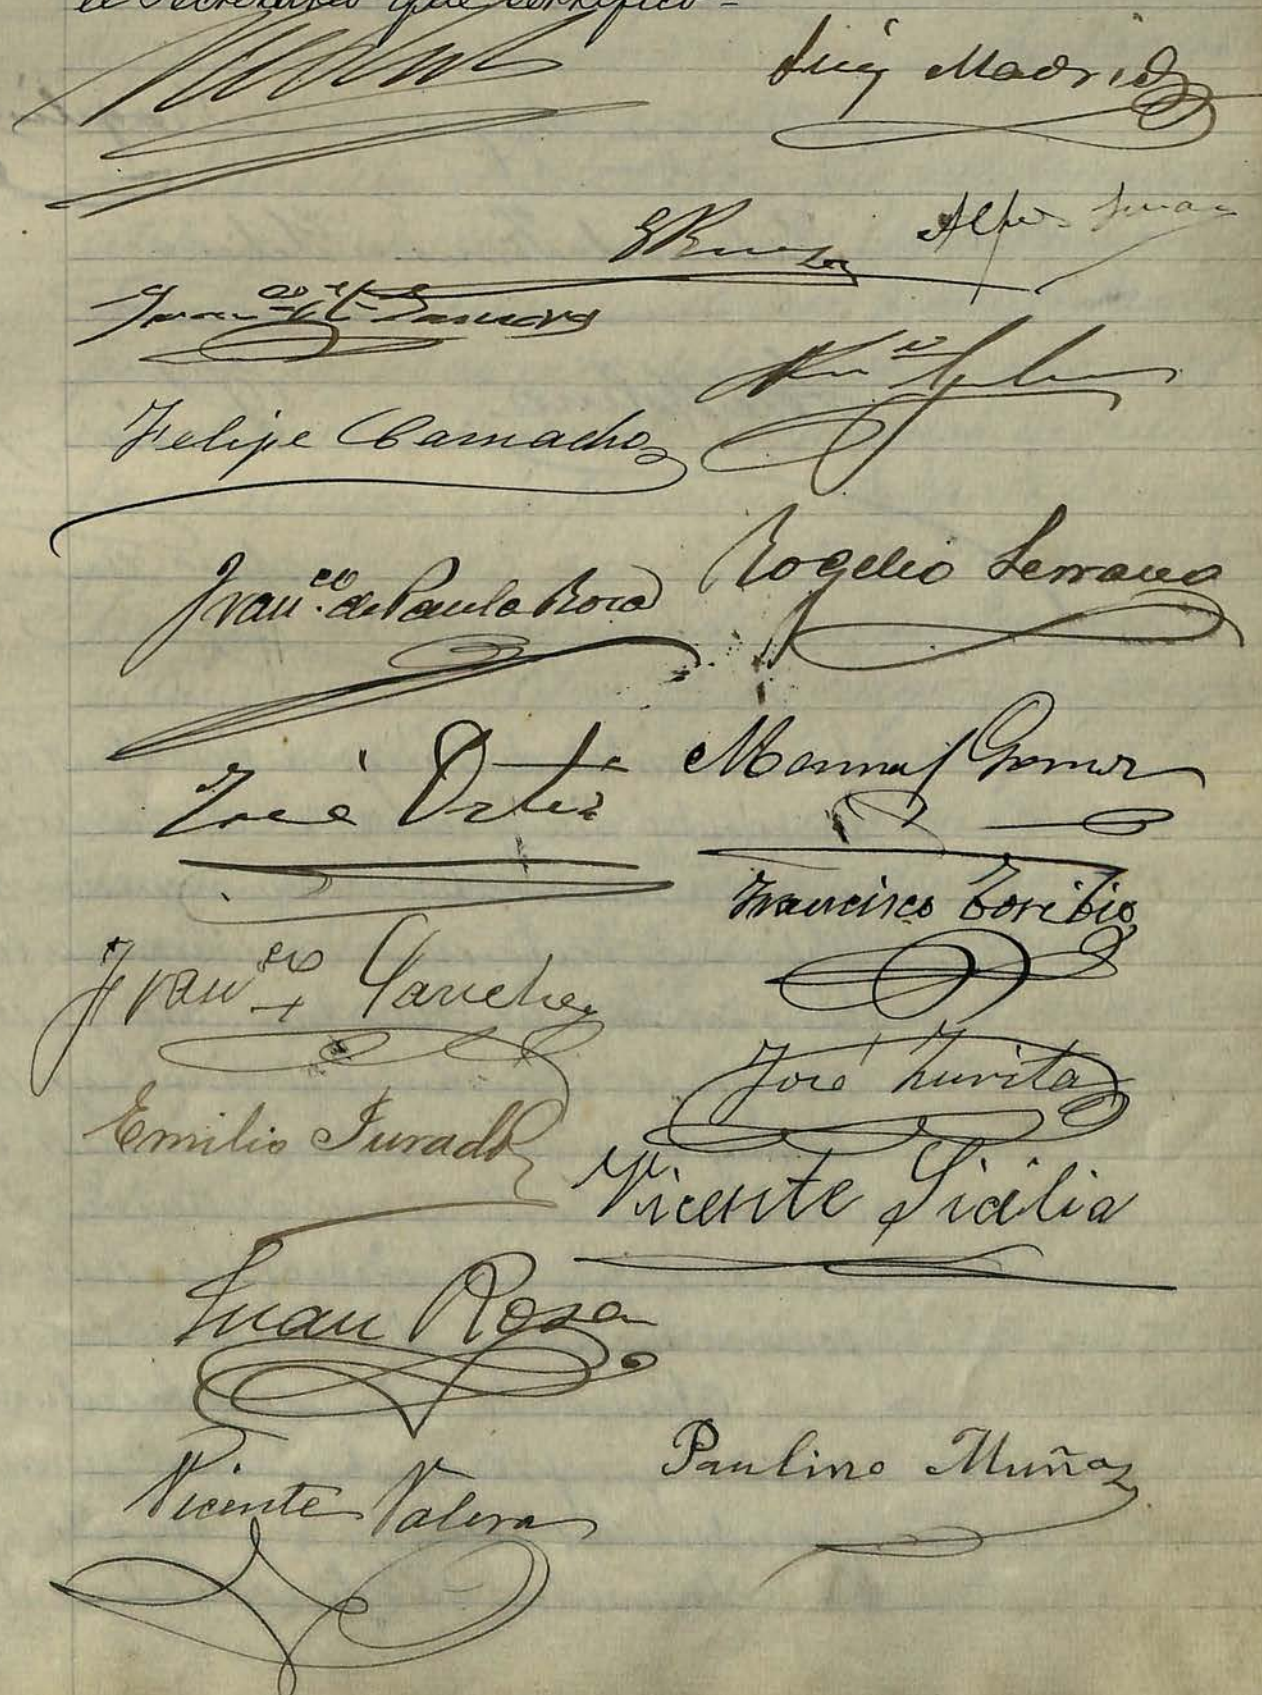 el Secretario que certifico -
Luis Madrid
Felipe Camacho
Fran.co de Paula Roca
Rogelio Serrano
José Ortiz
Manuel Gomez
Francisco Toribio
Fran.co Sanchez
José Zurita
Emilio Jurado
Vicente Sicilia
Juan Rosa
Paulino Muñoz
Vicente Valera